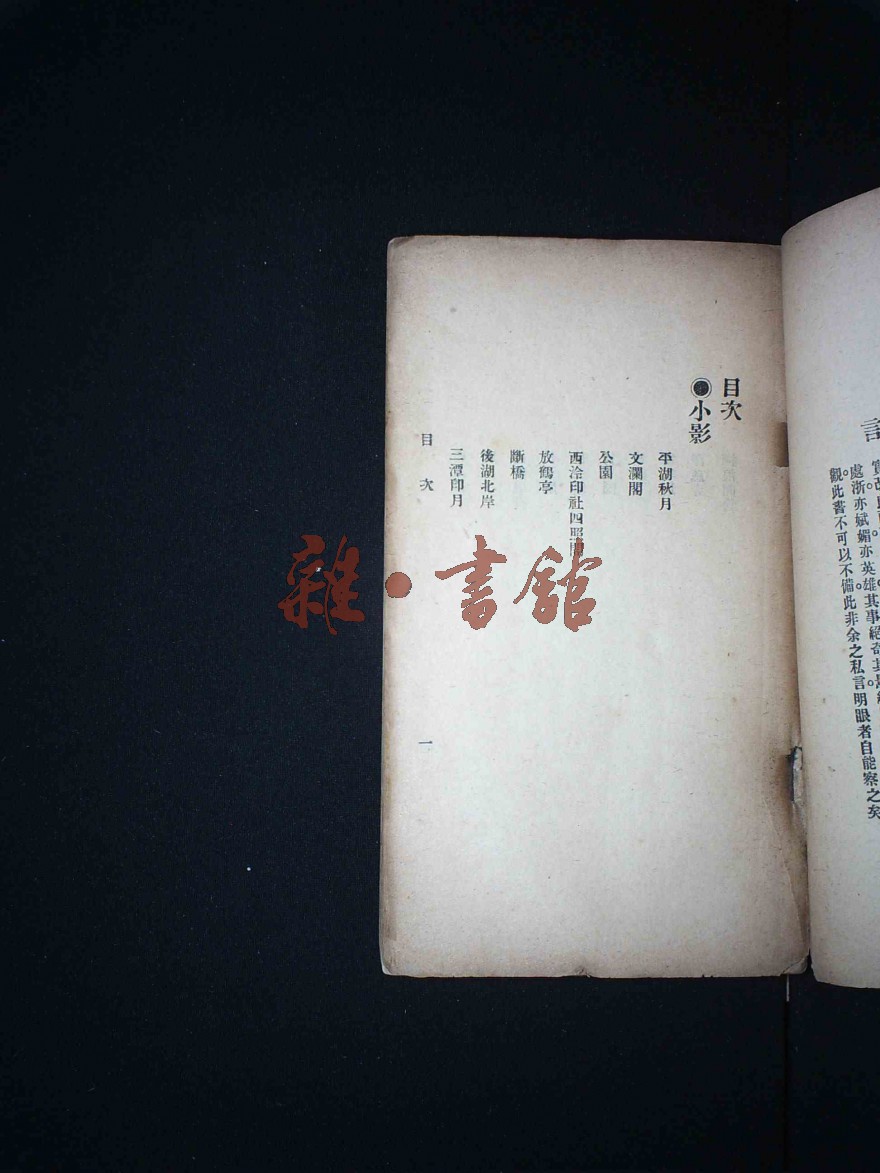 處浙亦斌媚亦英雄。其事絕奇其
觀此書不可以不備此非余之私言明眼者自能察之矣
目次
◉小影
平湖秋月
文瀾閣
公園
西泠印社四照
放鶴亭
斷橋
後湖北岸
三潭印月
目次
一
雜·書館